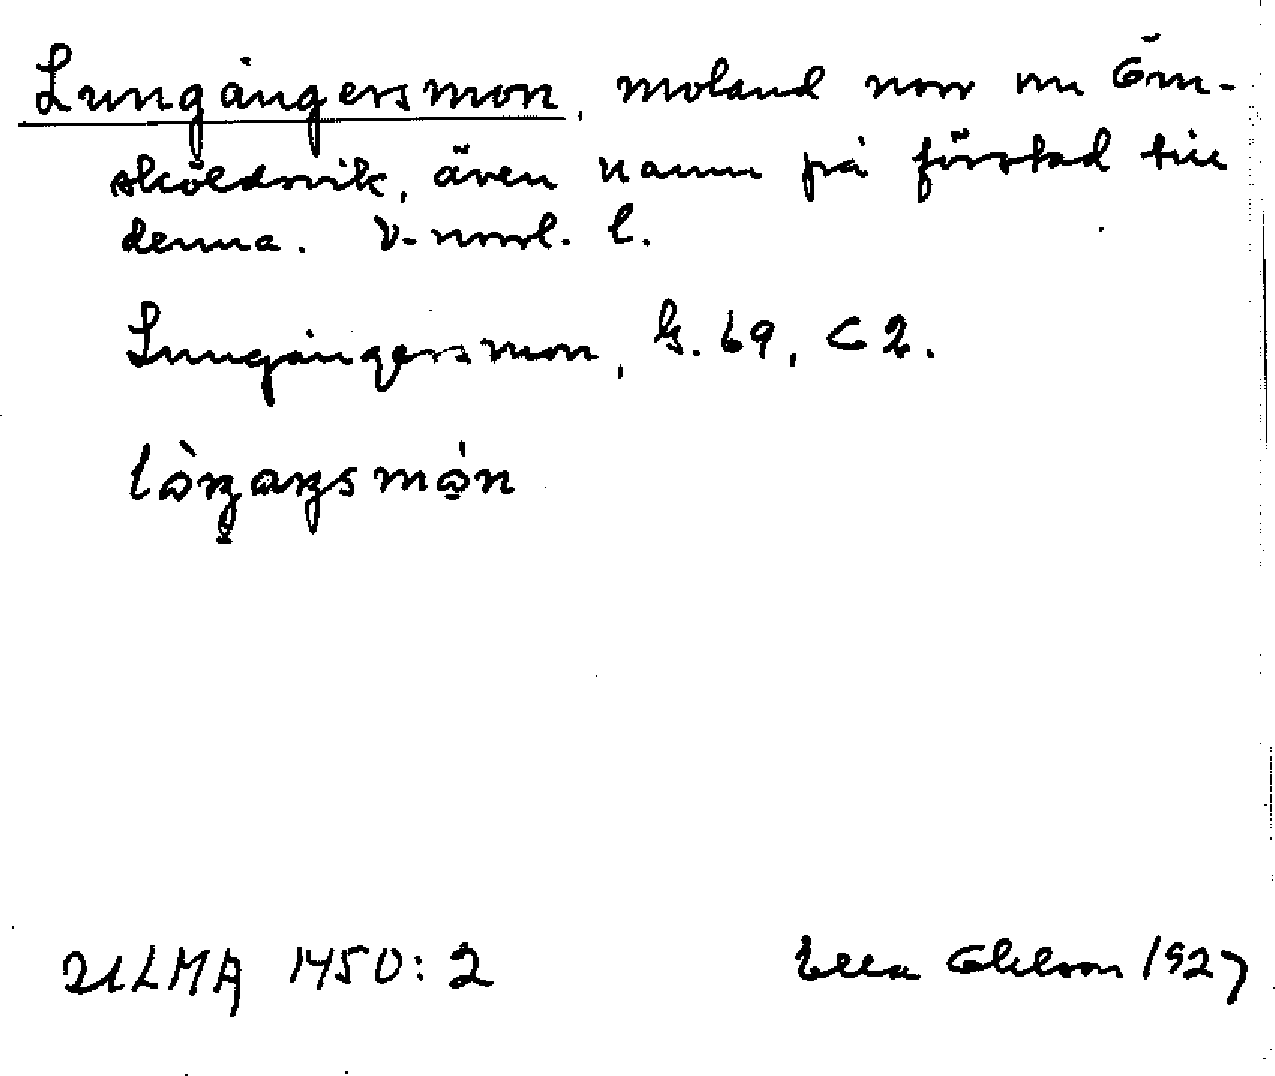 Lungångersmon, moland norr om Örn-
sköldsvik, även namn på förstad till
denna. V. norrl. l.
Lungångersmon, G. 69, C 2.
ULMA 1450:2
Ella Ohlson 1927